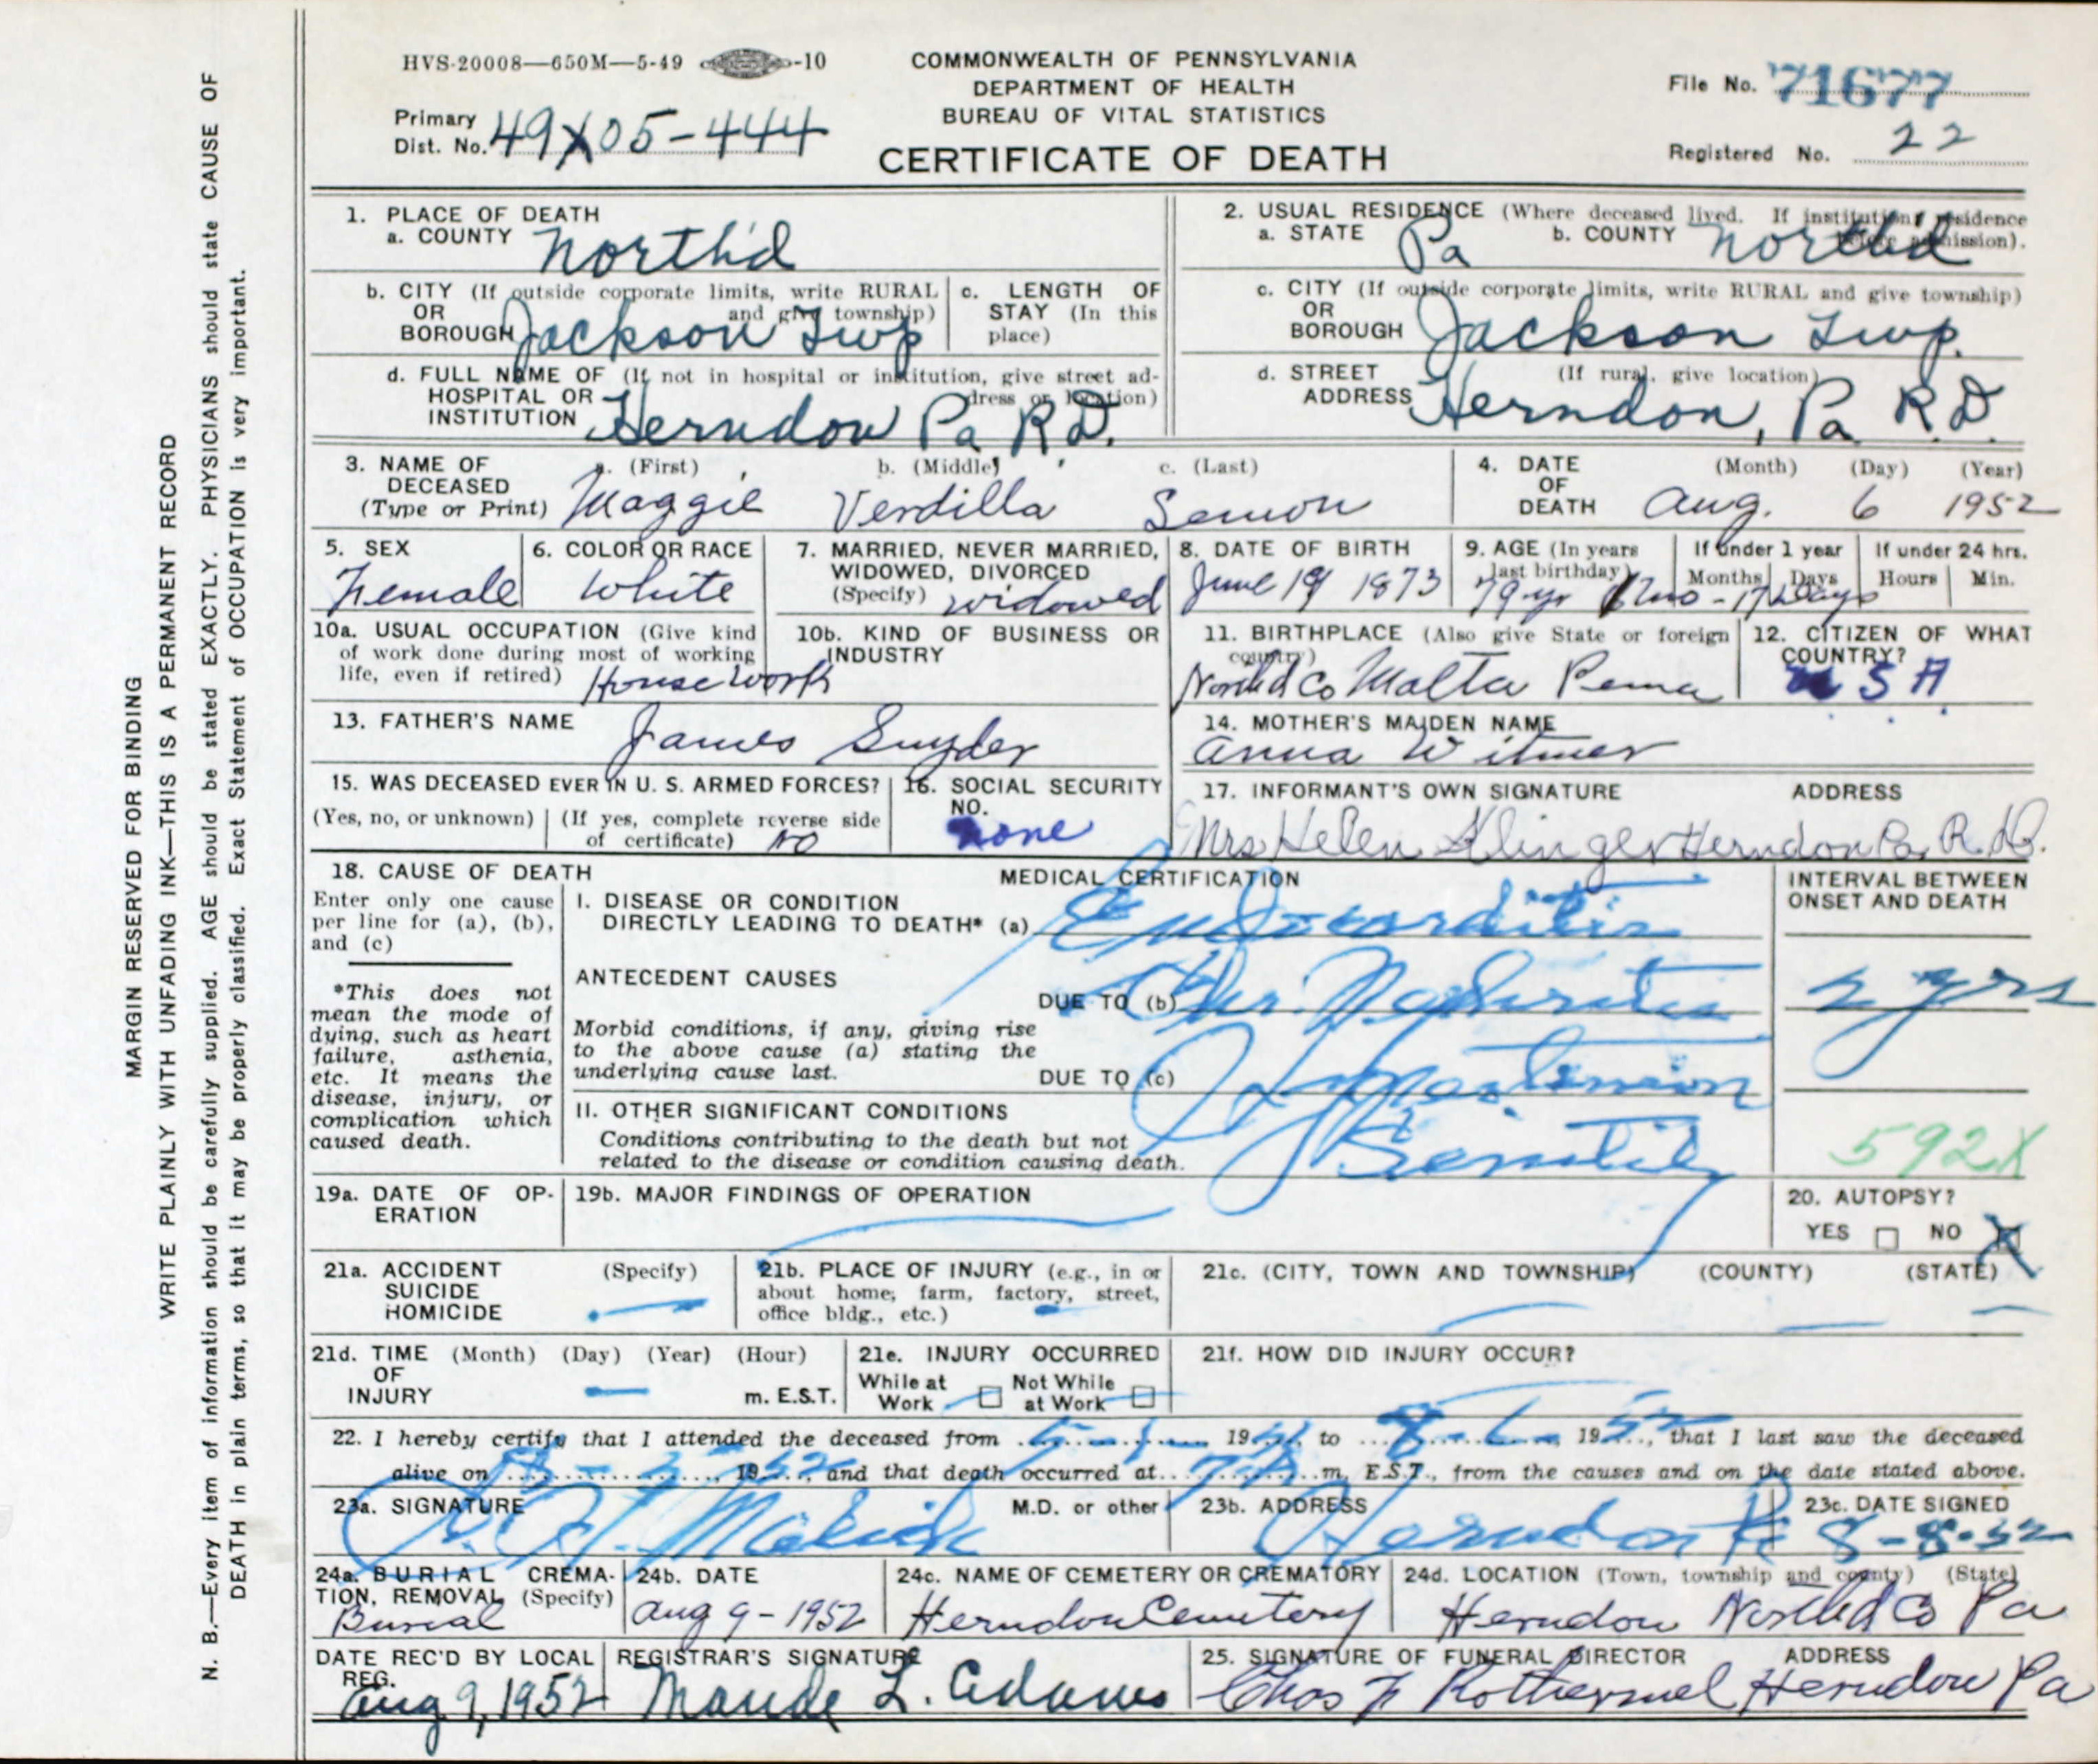 HVS-20008—650M—5-49 -10
COMMONWEALTH OF PENNSYLVANIA
DEPARTMENT OF HEALTH
BUREAU OF VITAL STATISTICS
CERTIFICATE OF DEATH
File No. 71677
Primary Dist. No. 49X05-444
Registered No. 22
MARGIN RESERVED FOR BINDING
WRITE PLAINLY WITH UNFADING INK—THIS IS A PERMANENT RECORD
N. B.—Every item of information should be carefully supplied. AGE should be stated EXACTLY. PHYSICIANS should state CAUSE OF
DEATH in plain terms, so that it may be properly classified. Exact Statement of OCCUPATION is very important.
1. PLACE OF DEATH
a. COUNTY North'd
2. USUAL RESIDENCE (Where deceased lived. If institution: residence before admission).
a. STATE Pa b. COUNTY North'd
b. CITY (If outside corporate limits, write RURAL and give township)
OR
BOROUGH Jackson Twp
c. LENGTH OF STAY (In this place)
c. CITY (If outside corporate limits, write RURAL and give township)
OR
BOROUGH Jackson Twp.
d. FULL NAME OF (If not in hospital or institution, give street address or location)
HOSPITAL OR
INSTITUTION Herndon Pa R.D.
d. STREET (If rural, give location)
ADDRESS Herndon, Pa. R.D.
3. NAME OF DECEASED (Type or Print)
a. (First) b. (Middle) c. (Last)
Maggie Verdilla
4. DATE OF DEATH (Month) (Day) (Year)
Aug. 6 1952
5. SEX
Female
6. COLOR OR RACE
White
7. MARRIED, NEVER MARRIED, WIDOWED, DIVORCED (Specify) widowed
8. DATE OF BIRTH
June 19 1873
9. AGE (In years last birthday)
If under 1 year Months Days
If under 24 hrs. Hours Min.
79 yr 1 mo - 17 Days
10a. USUAL OCCUPATION (Give kind of work done during most of working life, even if retired) Housework
10b. KIND OF BUSINESS OR INDUSTRY
11. BIRTHPLACE (Also give State or foreign country)
North'd Co Malta Penna
12. CITIZEN OF WHAT COUNTRY?
U S A
13. FATHER'S NAME
James Snyder
14. MOTHER'S MAIDEN NAME
Anna Witmer
15. WAS DECEASED EVER IN U. S. ARMED FORCES?
(Yes, no, or unknown) (If yes, complete reverse side of certificate) no
16. SOCIAL SECURITY NO.
none
17. INFORMANT'S OWN SIGNATURE ADDRESS
Mrs Helen Klinger Herndon Pa. R.D.
18. CAUSE OF DEATH
Enter only one cause per line for (a), (b), and (c)
*This does not mean the mode of dying, such as heart failure, asthenia, etc. It means the disease, injury, or complication which caused death.
MEDICAL CERTIFICATION
I. DISEASE OR CONDITION
DIRECTLY LEADING TO DEATH* (a) Endocarditis
ANTECEDENT CAUSES
DUE TO (b) Chr. Nephritis
Morbid conditions, if any, giving rise to the above cause (a) stating the underlying cause last.
DUE TO (c) Hypertension
II. OTHER SIGNIFICANT CONDITIONS
Conditions contributing to the death but not related to the disease or condition causing death.
Senility
INTERVAL BETWEEN ONSET AND DEATH
2 yrs
592X
19a. DATE OF OPERATION
19b. MAJOR FINDINGS OF OPERATION
20. AUTOPSY?
YES NO X
21a. ACCIDENT SUICIDE HOMICIDE (Specify)
21b. PLACE OF INJURY (e.g., in or about home, farm, factory, street, office bldg., etc.)
21c. (CITY, TOWN AND TOWNSHIP) (COUNTY) (STATE)
21d. TIME OF INJURY (Month) (Day) (Year) (Hour) m. E.S.T.
21e. INJURY OCCURRED
While at Work Not While at Work
21f. HOW DID INJURY OCCUR?
22. I hereby certify that I attended the deceased from 19 to 8-6 1952, that I last saw the deceased
alive on 1952 and that death occurred at m. E.S.T., from the causes and on the date stated above.
23a. SIGNATURE M.D. or other
23b. ADDRESS
Herndon Pa
23c. DATE SIGNED
8-8-52
24a. BURIAL CREMATION, REMOVAL (Specify)
Burial
24b. DATE
Aug 9-1952
24c. NAME OF CEMETERY OR CREMATORY
Herndon Cemetery
24d. LOCATION (Town, township and county) (State)
Herndon North'd Co Pa
DATE REC'D BY LOCAL REG.
Aug 9, 1952
REGISTRAR'S SIGNATURE
Maude L. Adams
25. SIGNATURE OF FUNERAL DIRECTOR ADDRESS
Chas F Rothermel Herndon Pa